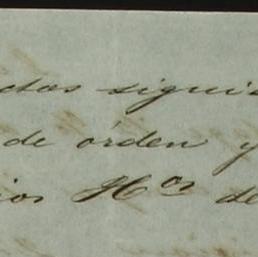 ctas siguie
de órden y
ios H.os de